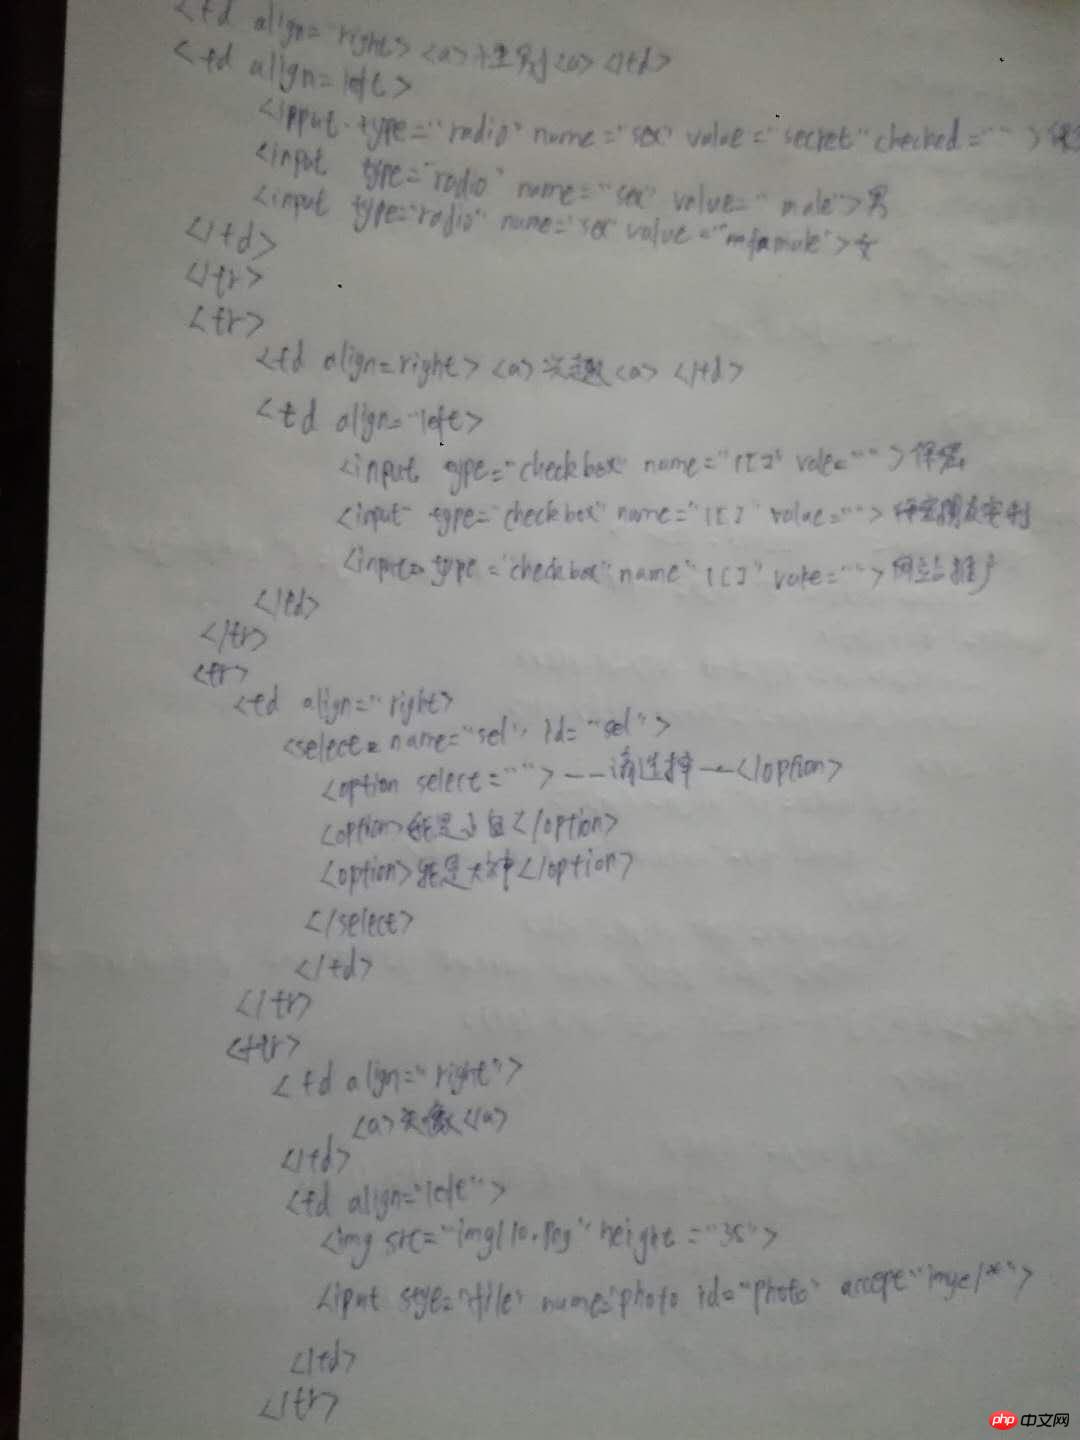 <td align="right> <a>性别<a> </td>
<td align=left>
<input type="radio" name="sex" value="secret" checked="" >
<input type="radio" name="sex" value="male">男
<input type="radio" name="sex" value="">女
</td>
</tr>
<tr>
<td align=right> <a>兴趣<a> </td>
<td align="left>
<input type="checkbox" name="1[]" vale="" >
<input type="checkbox" name="1[]" value="">
<input type="checkbox" name" 1[]" vale=""> 网站推广
</td>
</tr>
<tr>
<td align="right>
<select name="sel" id="sel">
<option select=""> --请选择--</option>
<option>是小白</option>
<option>是大神</option>
</select>
</td>
</tr>
<tr>
<td align="right">
<a>头像</a>
</td>
<td align="left">
<img src="img/10.png" height="35">
<iput stye="file" name="photo id="photo" accept"imge/*">
</td>
</tr>
php 中文网